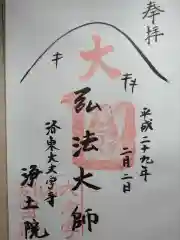 奉拝
平成二十九年
二月二日
大
弘法大師
洛東大文字寺
浄土院